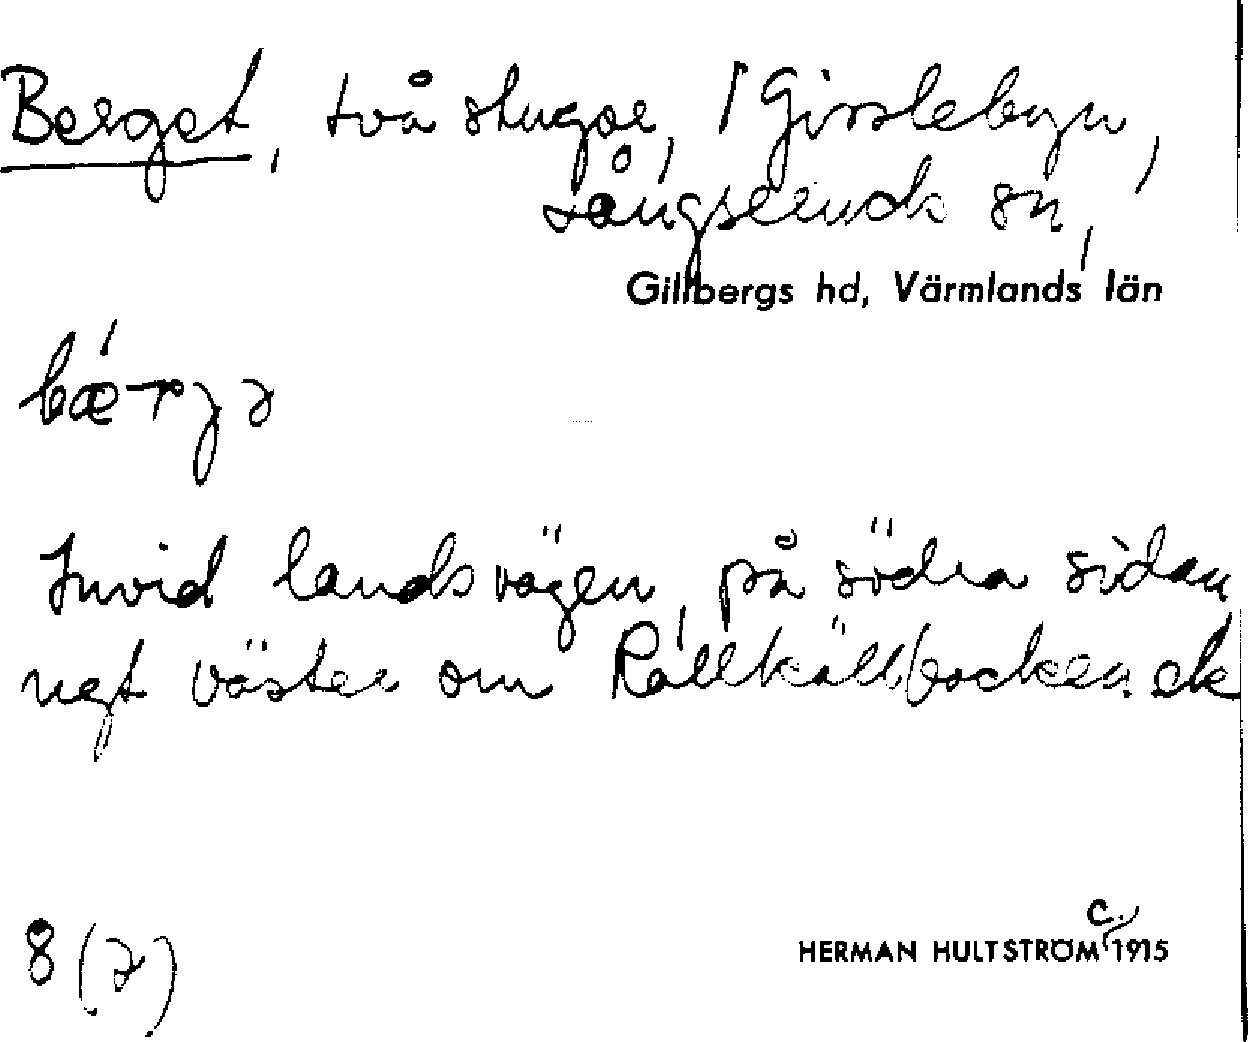 Berget, två stugor, i Girslebyn,
Långseruds sn,
Gillbergs hd, Värmlands län
bæ´rjə
Invid landsvägen, på södra sidan
ngt väster om
8 (2)
HERMAN HULTSTRÖM c. 1915